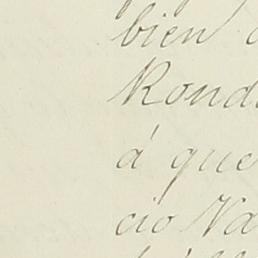 bien
Rond
á que
cio Na